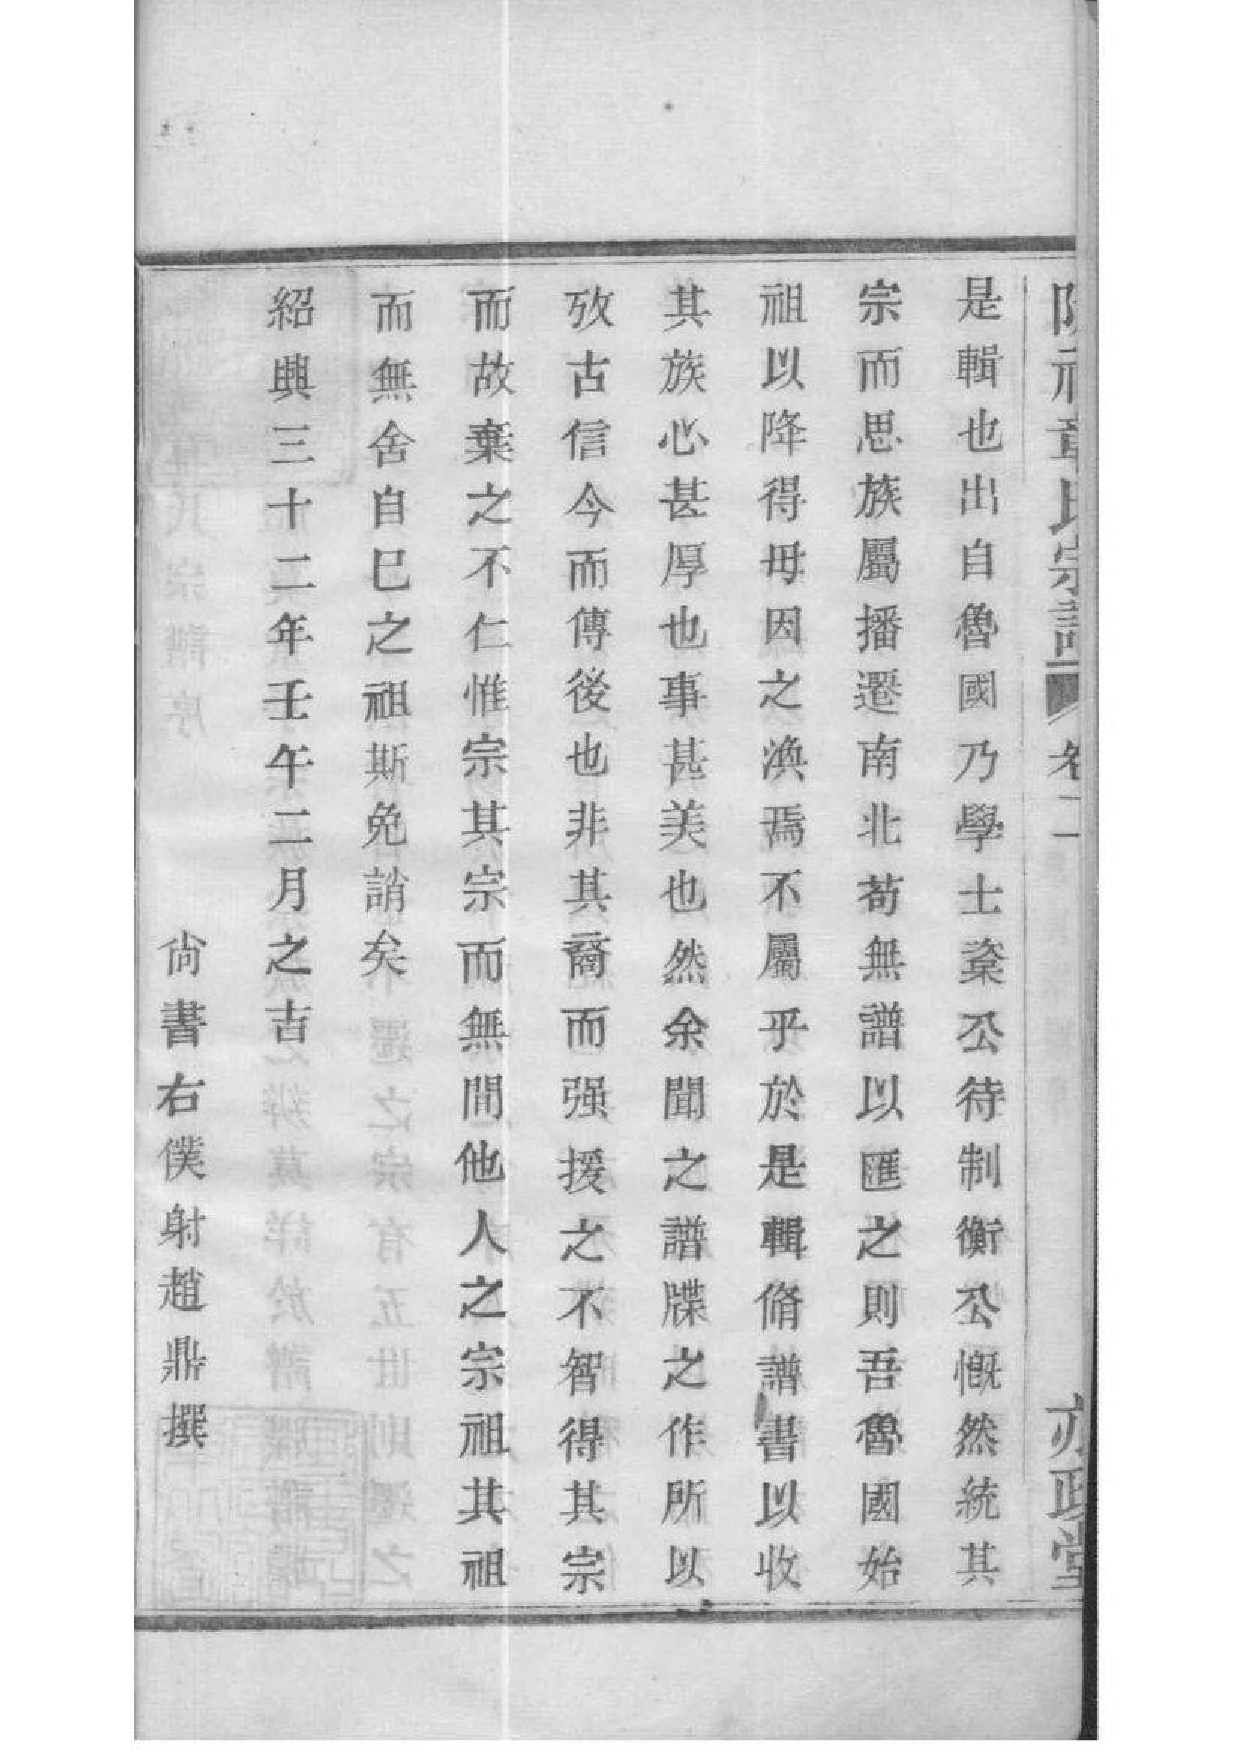 章氏宗譜 卷二 亦政堂
是輯也出自魯國乃學士粢公待制衡公慨然統其
宗而思族屬播遷南北苟無譜以匯之則吾魯國始
祖以降得毋因之渙焉不屬乎於是輯脩譜書以收
其族心甚厚也事甚美也然余聞之譜牒之作所以
攷古信今而傳後也非其裔而强援之不智得其宗
而故棄之不仁惟宗其宗而無間他人之宗祖其祖
而無舍自巳之祖斯免誚矣
紹興三十二年壬午二月之吉
尙書右僕射趙鼎撰